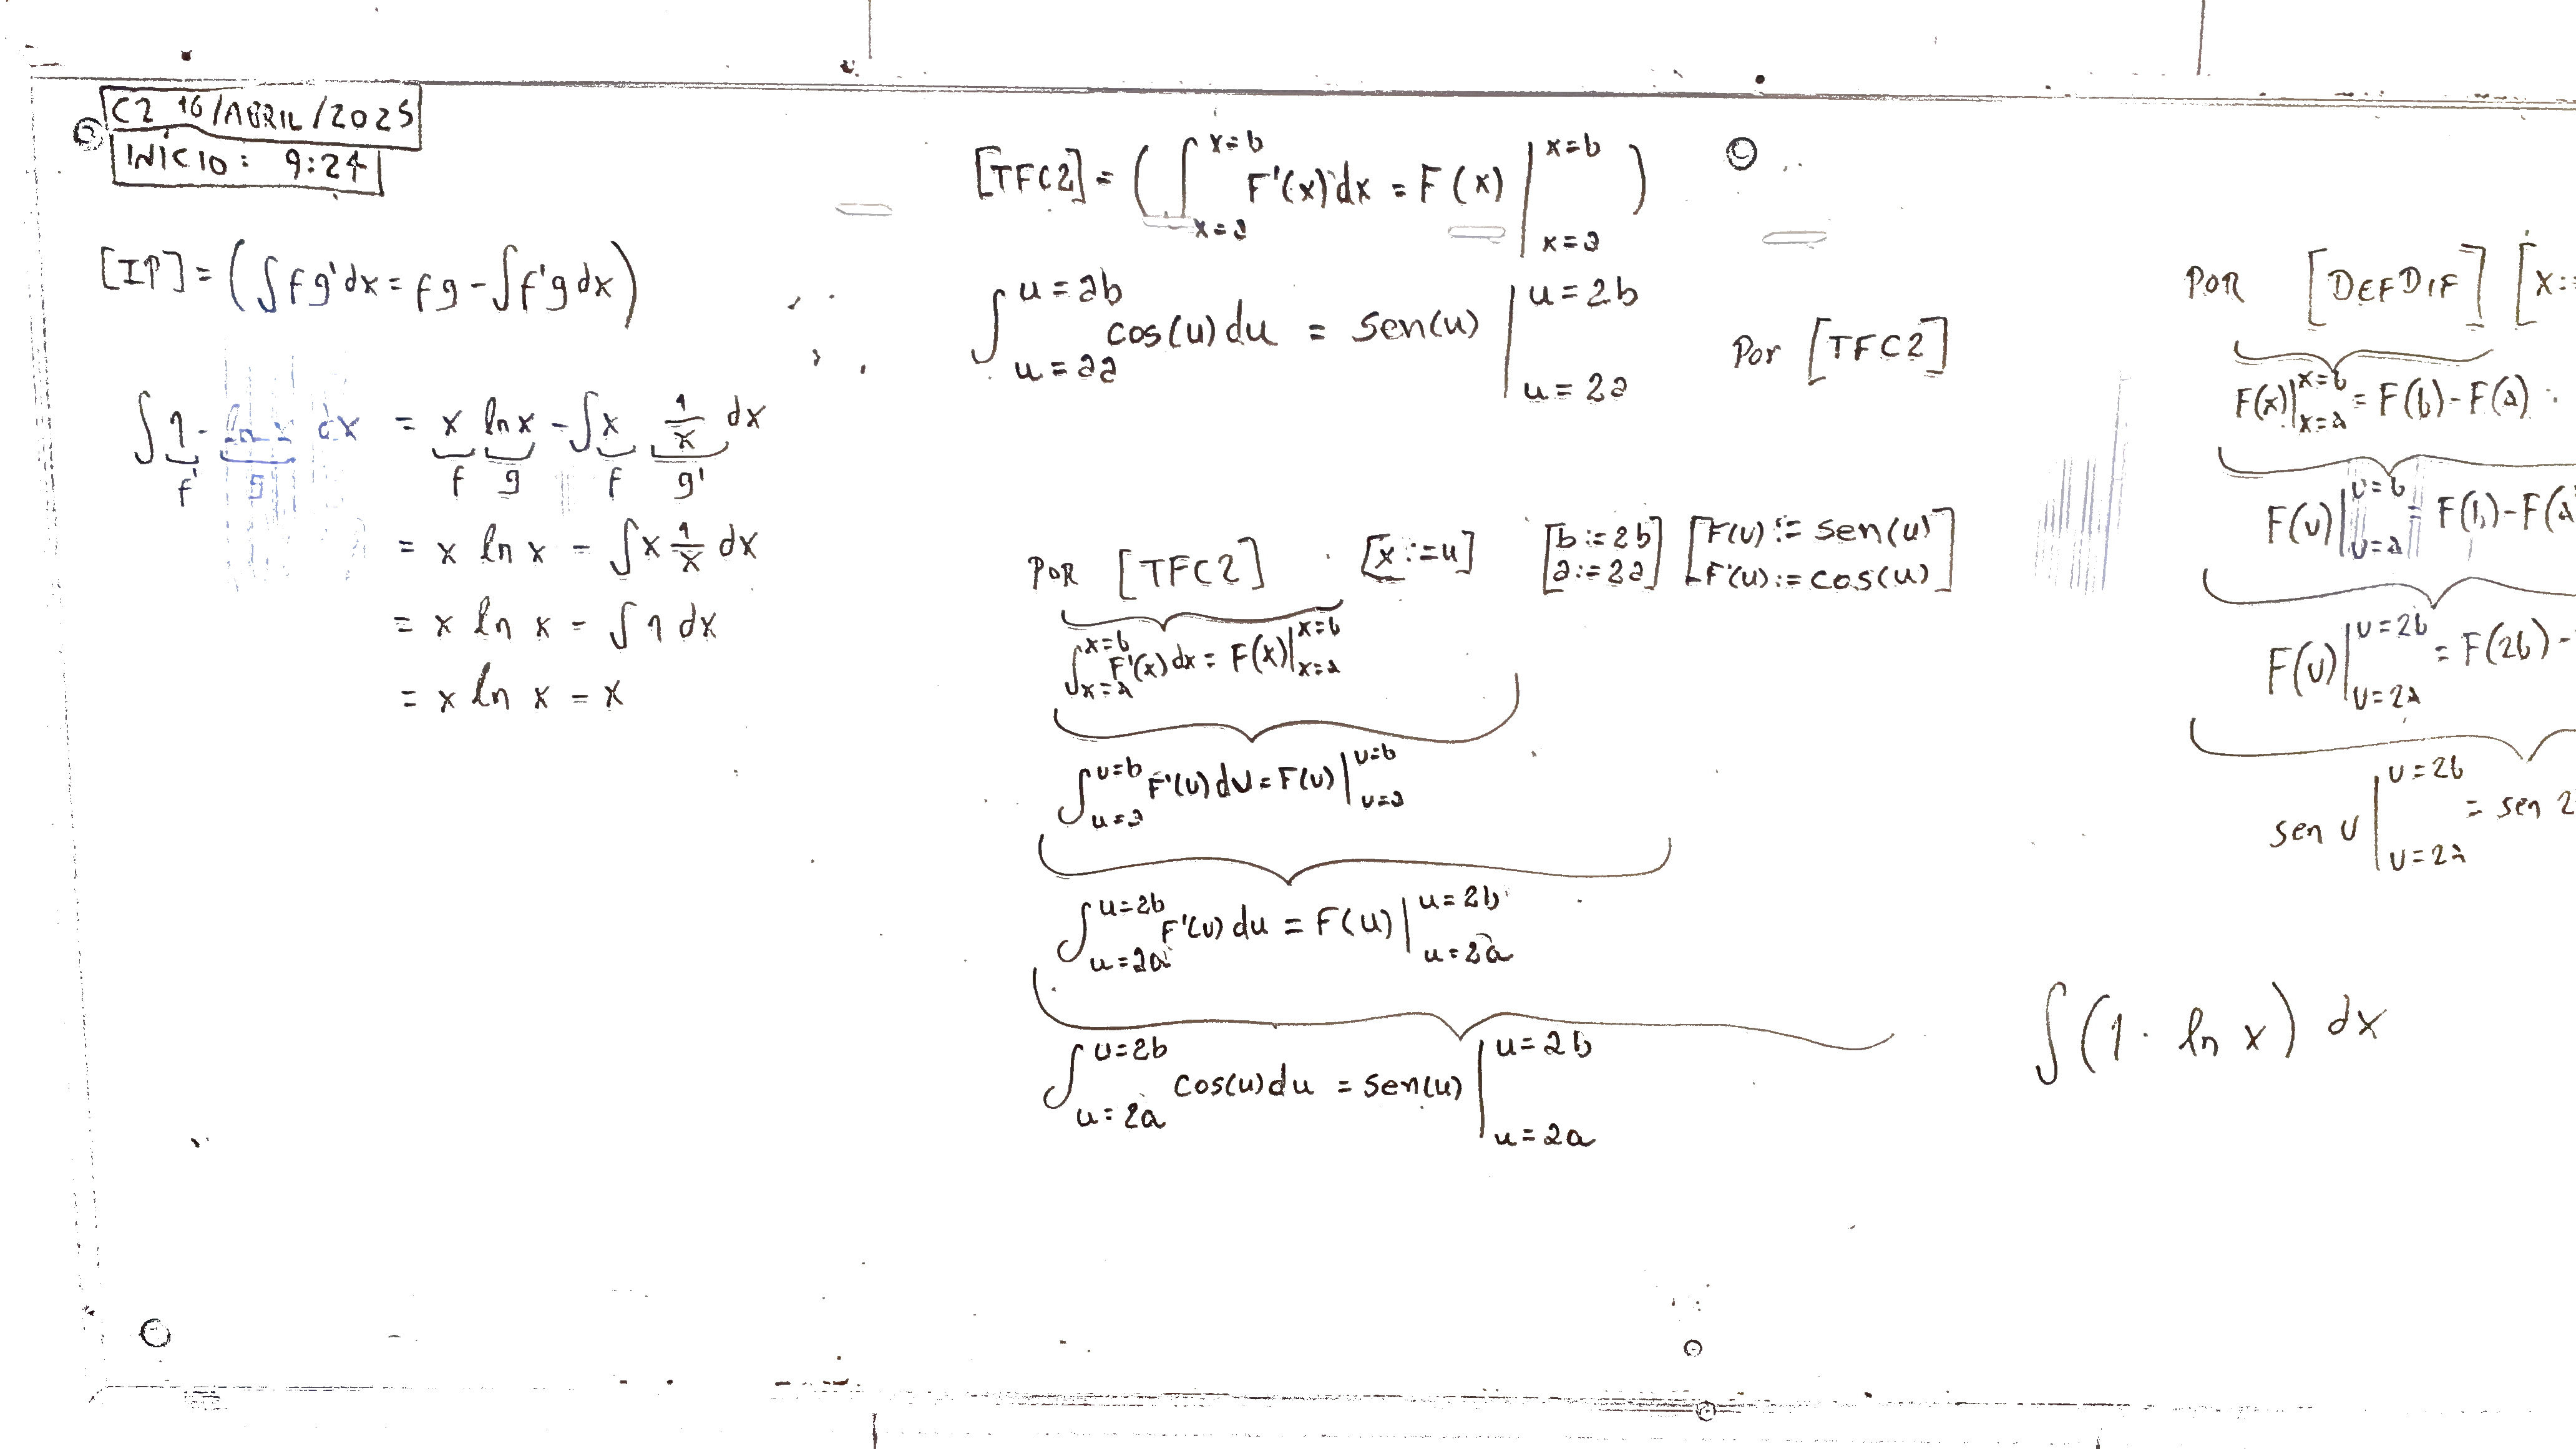 C2 16/ABRIL/2025
INÍCIO: 9:24
[IP] = (∫fg'dx = fg - ∫f'g dx)
∫1·ln x dx = x ln x - ∫x 1/x dx
f' g f g f g'
= x ln x - ∫x 1/x dx
= x ln x - ∫1 dx
= x ln x - x
[TFC2] = (∫_{x=a}^{x=b} F'(x)dx = F(x)|_{x=a}^{x=b})
∫_{u=2a}^{u=2b} cos(u)du = sen(u)|_{u=2a}^{u=2b} Por [TFC2]
POR [TFC2] [x:=u] [b:=2b a:=2a] [F(u):=sen(u) F'(u):=cos(u)]
∫_{x=a}^{x=b} F'(x)dx = F(x)|_{x=a}^{x=b}
∫_{u=a}^{u=b} F'(u)du = F(u)|_{u=a}^{u=b}
∫_{u=2a}^{u=2b} F'(u)du = F(u)|_{u=2a}^{u=2b}
∫_{u=2a}^{u=2b} cos(u)du = sen(u)|_{u=2a}^{u=2b}
POR [DEFDIF] [x:=
F(x)|_{x=a}^{x=b} = F(b)-F(a)
F(u)|_{u=a}^{u=b} = F(b)-F(a
F(u)|_{u=2a}^{u=2b} = F(2b)-
sen u|_{u=2a}^{u=2b} = sen 2
∫(1·ln x) dx